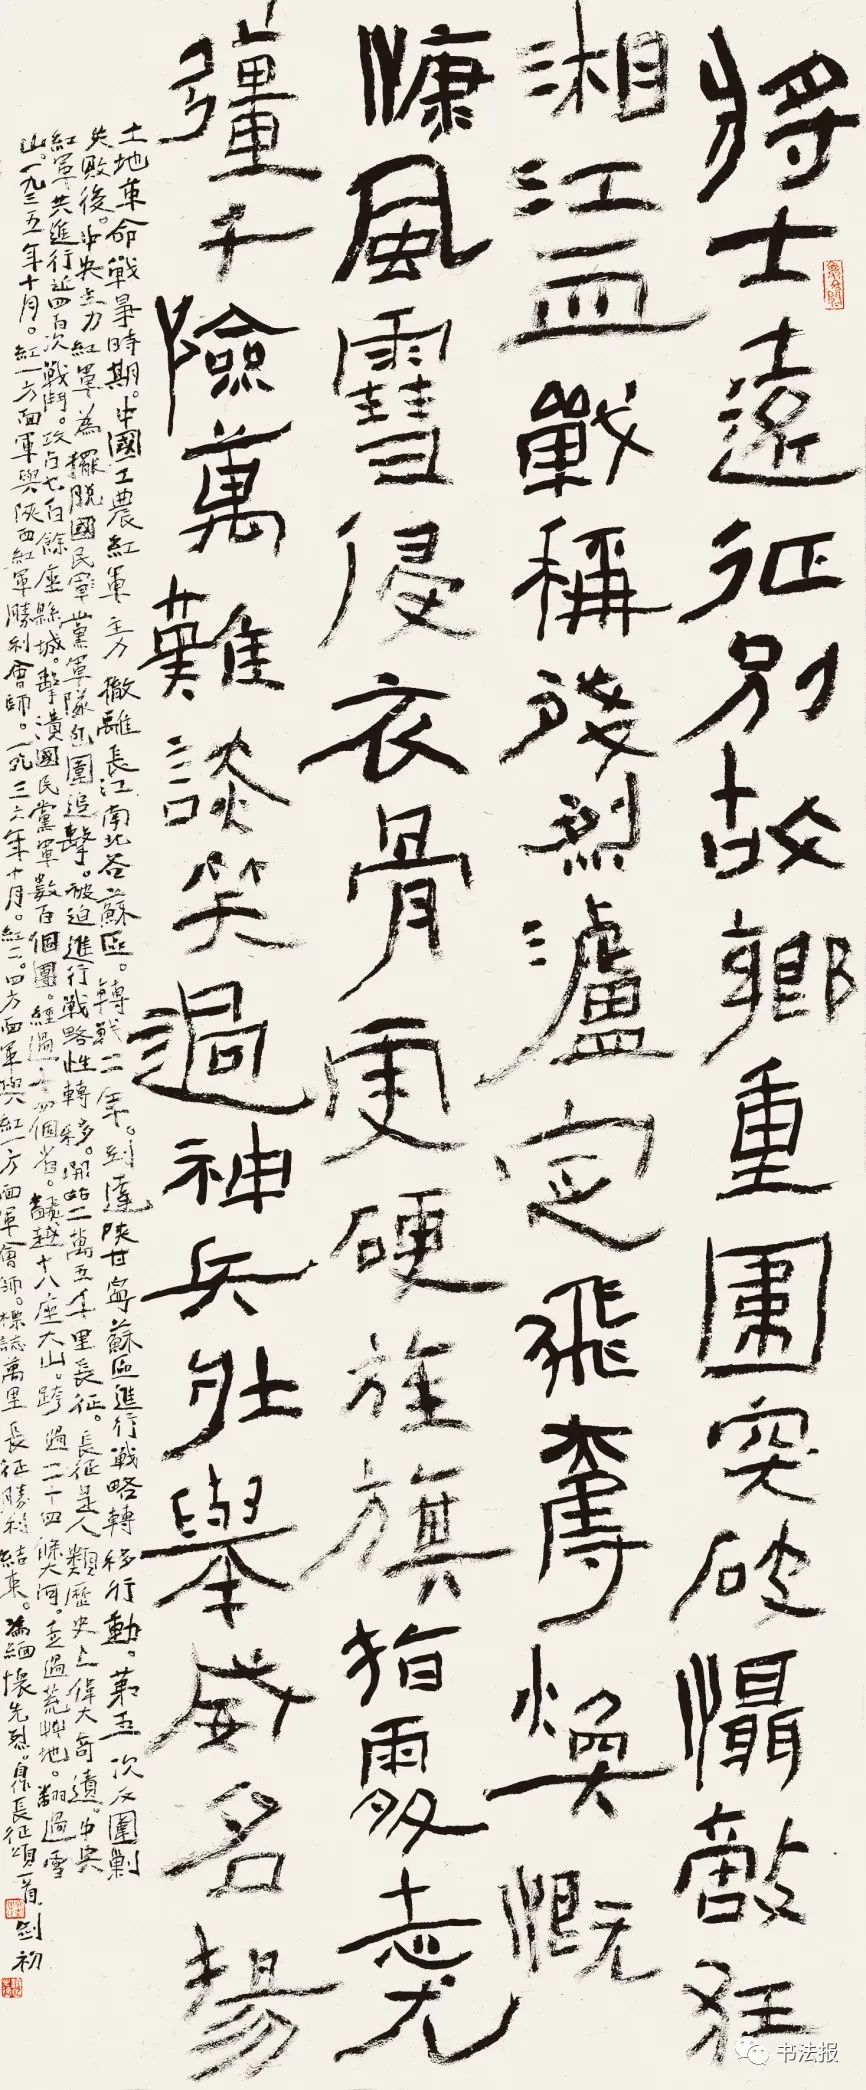 將士遠征別故鄉重圍突破懾敵狂
湘江血戰稱殘烈瀘定飛奪煥慨
慷風雪侵衣骨更硬旌旗指處志尤
彊千險萬難談笑過神兵壯舉威名揚
土地革命戰爭時期。中國工農紅軍主力撤離長江南北各蘇區。轉戰二年。到達陝甘寧蘇區進行戰略轉移行動。第五次反圍剿
失敗後。中央主力紅軍為擺脫國民黨軍隊包圍追擊。被迫進行戰略性轉移。開始二萬五千里長征。長征是人類歷史上偉大奇蹟。中央
紅軍共進行近四百次戰鬥。攻占七百餘座縣城。擊潰國民黨軍數百個團。經過十四個省。翻越十八座大山。跨過二十四條大河。走過荒艸地。翻過雪
山。一九三五年十月。紅一方面軍與陝西紅軍勝利會師。一九三六年十月。紅二。四方面軍與紅一方面軍會師。標誌萬里長征勝利結束。為緬懷先烈。as長征頌一首 劍初
书法报